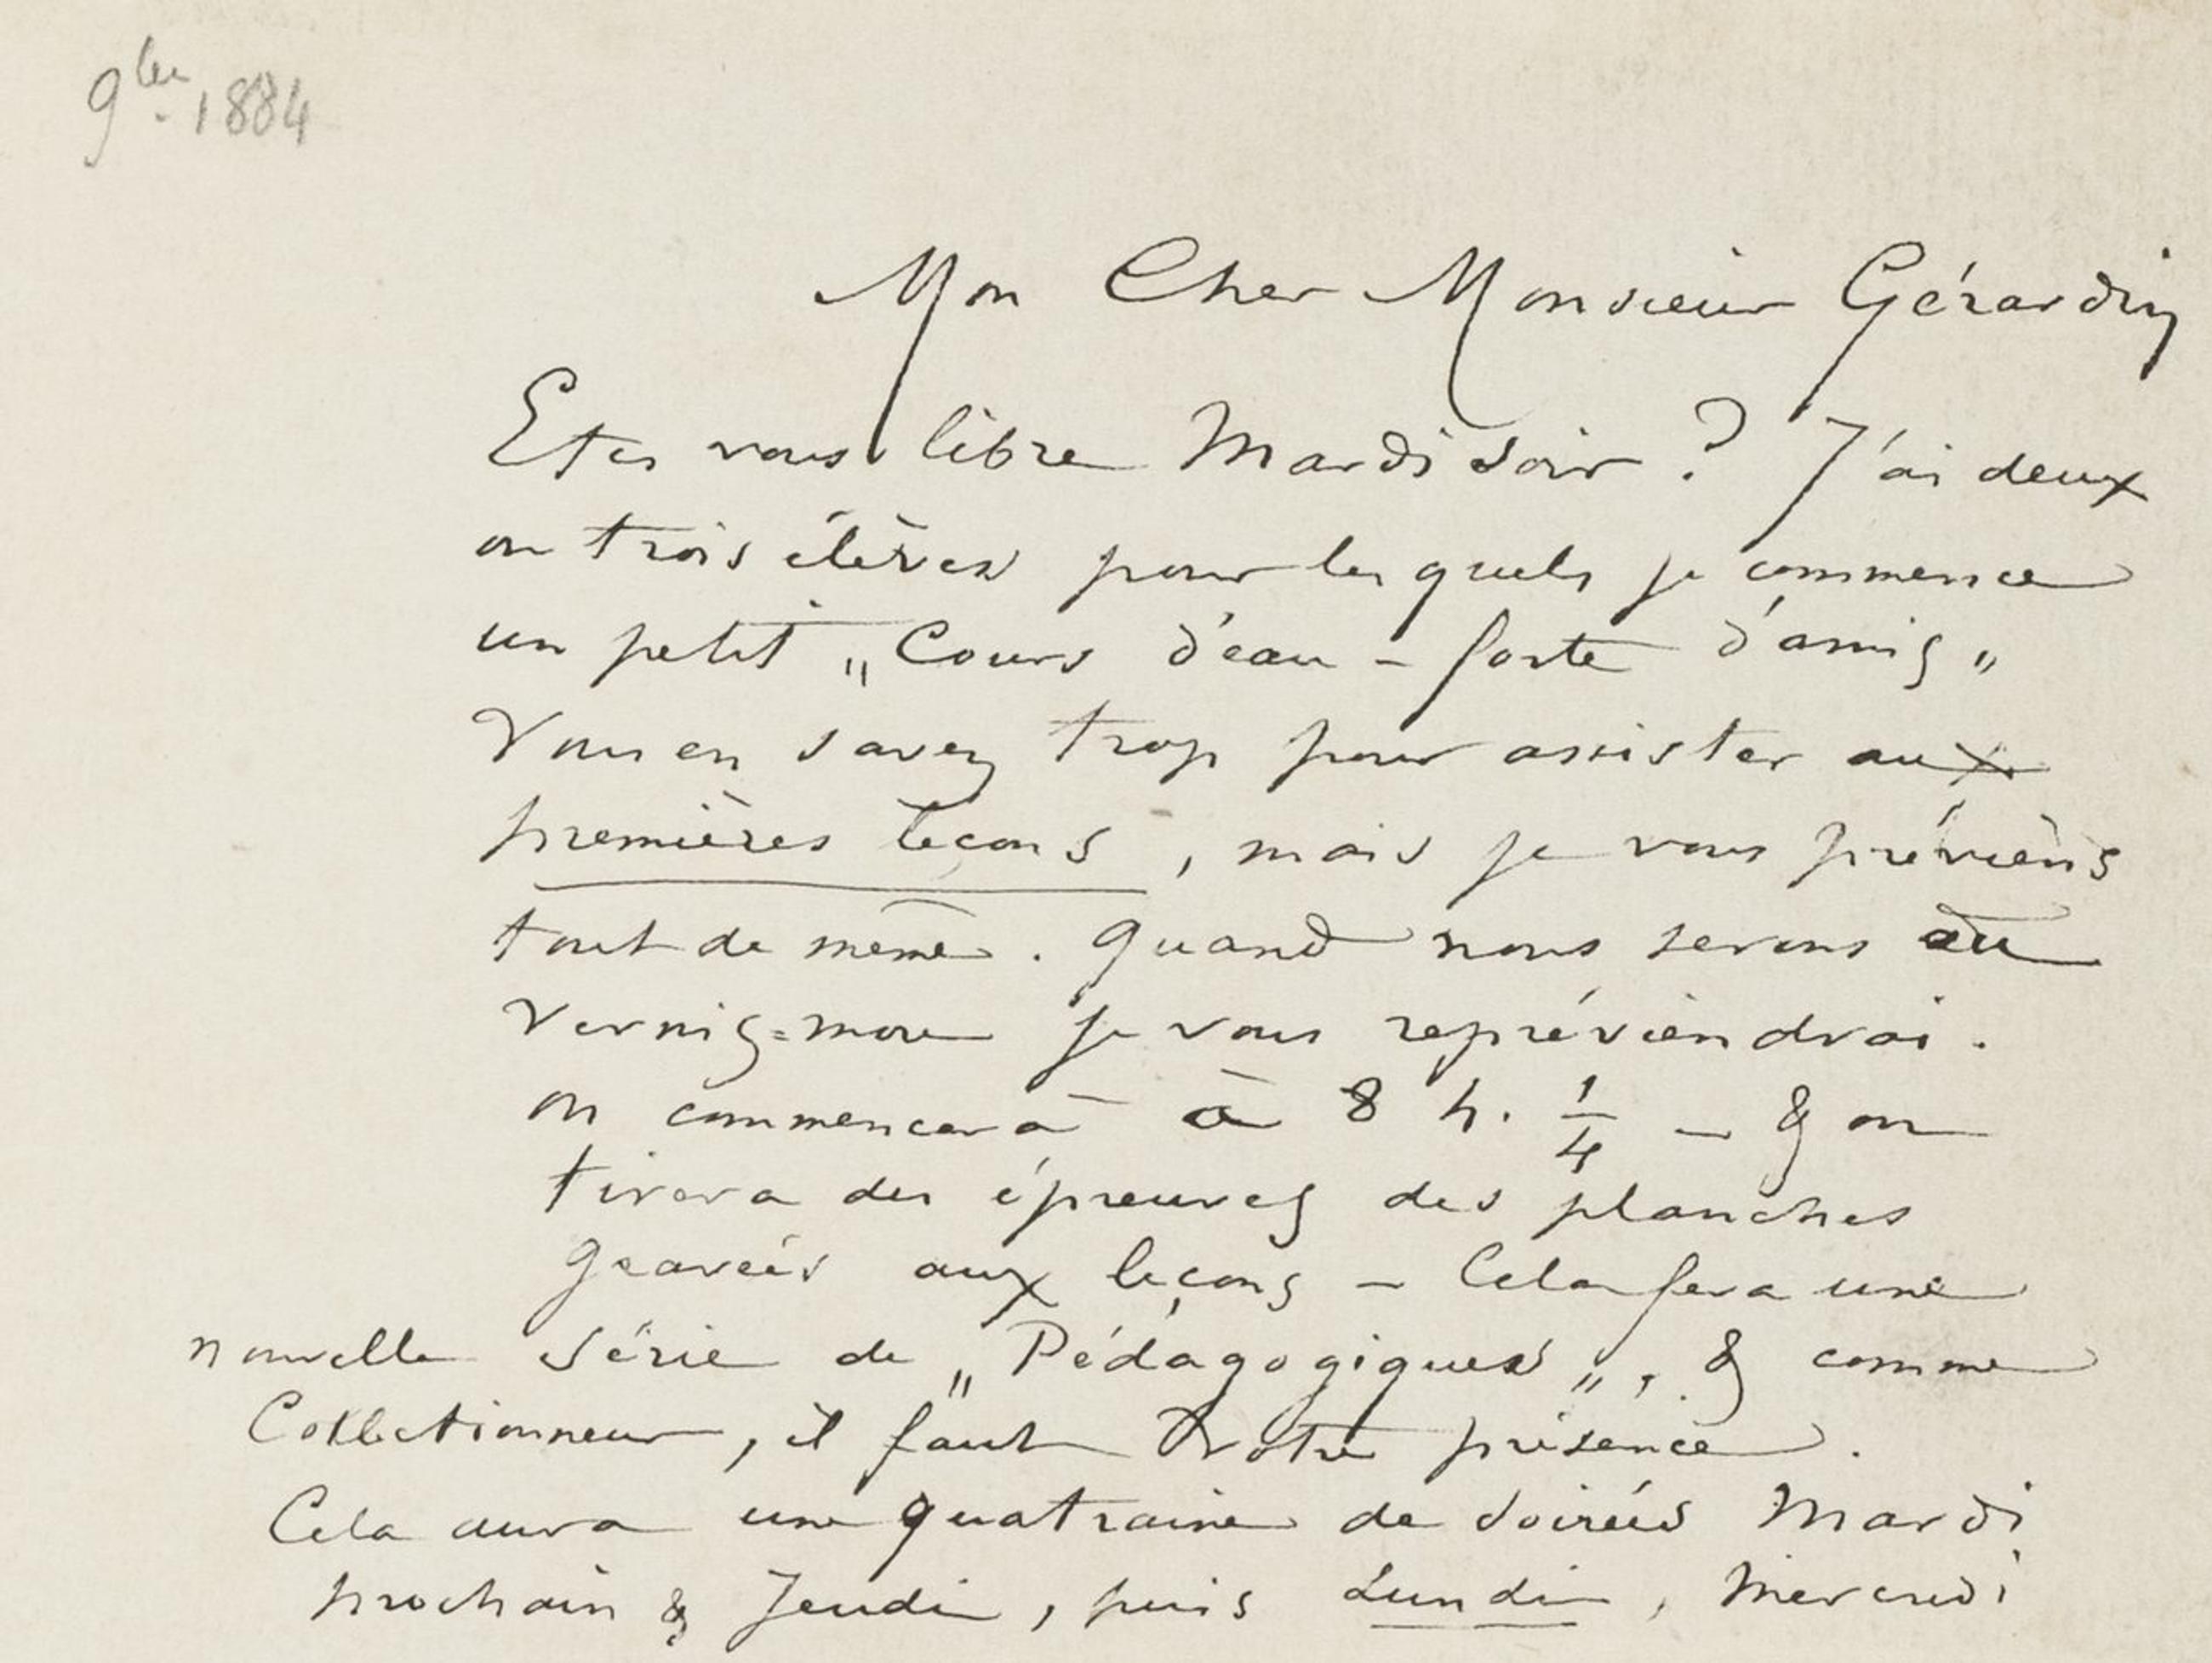 9bre 1884
Mon Cher Monsieur Gérardin
Etes vous libre Mardi soir ? J'ai deux
ou trois élèves pour lesquels je commence
un petit „ Cours d'eau-forte d'amis „
Vous en savez trop pour assister aux
premières leçons , mais je vous préviens
tout de même . Quand nous serons au
Vernis=mou je vous repréviendrai .
on commencera à 8 h. 1/4 – & on
tirera des épreuves des planches
gravées aux leçons – Cela fera une
nouvelle Série de „ Pédagogiques „ , & comme
Collectionneur , il faut votre présence .
Cela aura une quatraine de soirées Mardi
prochain & Jeudi , puis Lundi , Mercredi